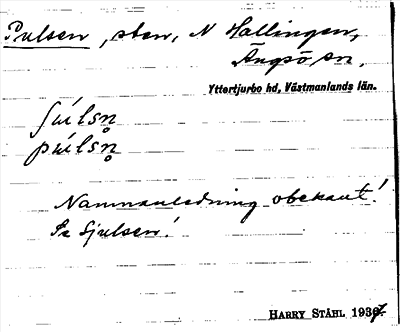 Pulsen, sten, N Hallingen,
Ängsö sn.
Yttertjurbo hd, Västmanlands län.
púlsn̥
Namnanledning obekant!
Se Sjulsen!
HARRY STÅHL 1937.